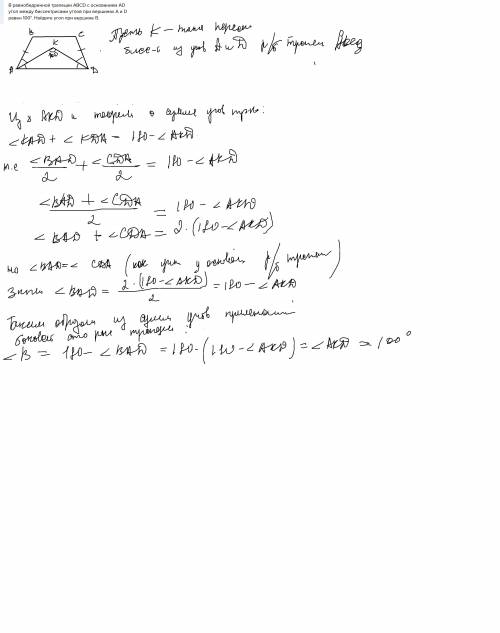 В равнобедренной трапеции ABCD с основанием AD
угол между биссектрисами углов при вершинах A и D
равен 100°. Найдите угол при вершине B.
B C
K
100
A D
Пусть K – точка перес
бисс-с из углов A и D р/б трапец ABCD
Из △ AKD и теореме о сумме углов :
∠KAD + ∠KDA = 180-∠AKD
т.е ∠BAD/2 + ∠CDA/2 = 180-∠AKD
(∠BAD + ∠CDA)/2 = 180-∠AKD
∠BAD + ∠CDA = 2·(180-∠AKD)
но ∠BAD=∠CDA (как углы у основан р/б трапец)
Значит ∠BAD = 2·(180-∠AKD)/2 = 180-∠AKD
Таким образом из сумма углов прилежащ
боковой стороне трапеции :
∠B = 180-∠BAD = 180-(180-∠AKD) = ∠AKD = 100°